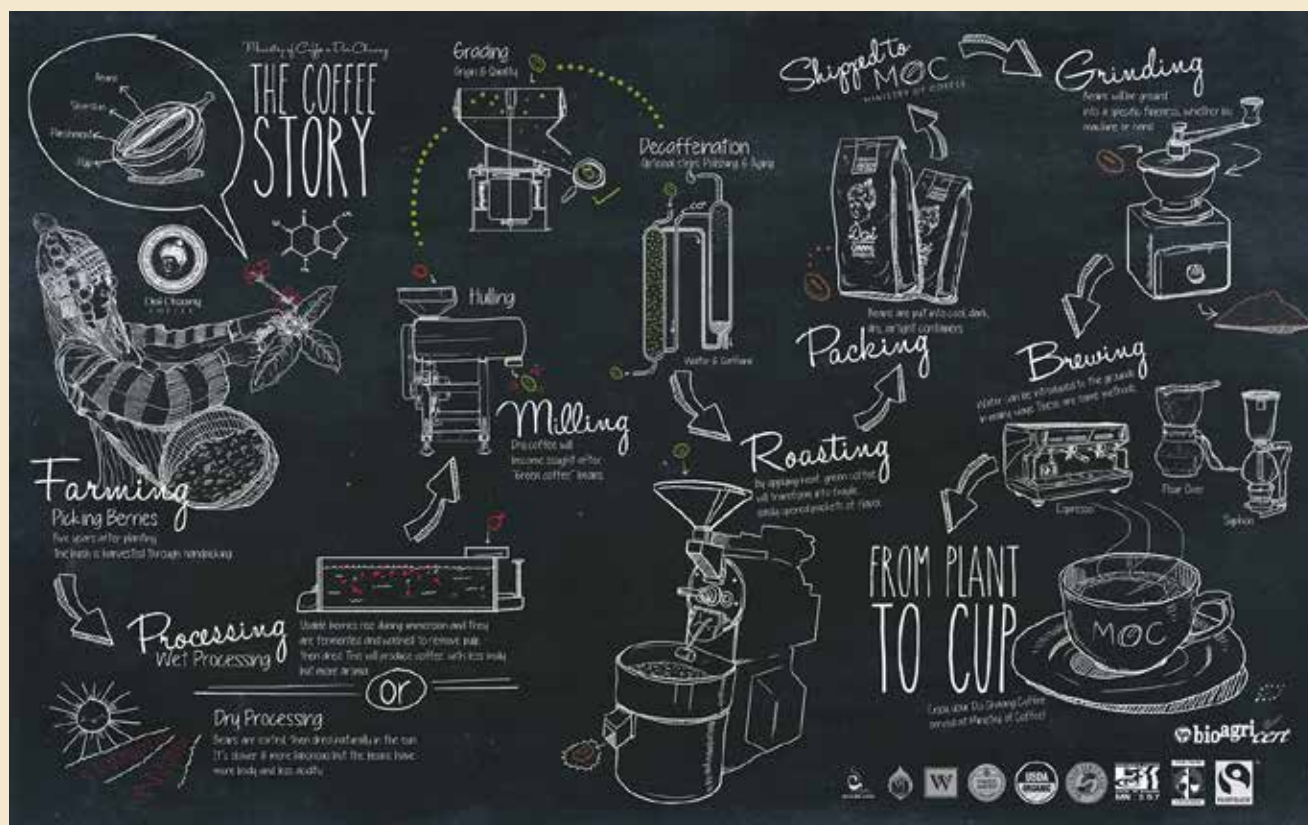 Ministry of Coffee & Doi Chaang
THE COFFEE
STORY
Beans
Silverskin
Parchment
Pulp
Doi Chaang
COFFEE
Farming
Picking Berries
Five years after planting
The bush is harvested through handpicking
Processing
Wet Processing
Usable berries rise during immersion and they
are fermented and washed to remove pulp
then dried. This will produce coffee with less body
but more aroma
or
Dry Processing
Beans are sorted, then dried naturally in the sun.
It's slower & more laborious but the beans have
more body and less acidity
Hulling
Milling
Dry coffee will
become sought after
"green coffee" beans
Grading
Origin & Quality
Decaffeination
Optional steps Polishing & Aging
CO²
Water & Caffeine
Roasting
By applying heat, green coffee
will transform into fragile,
easily opened pockets of flavor
Packing
Beans are put into cool, dark,
dry, airtight containers
Doi
Shipped to
MOC
MINISTRY OF COFFEE
Grinding
Beans will be ground
into a specific fineness, whether by
machine or hand
Brewing
Water can be introduced to the grounds
in many ways. These are some methods
Espresso
Pour Over
Syphon
FROM PLANT
TO CUP
Enjoy your Doi Chaang Coffee
served at Ministry of Coffee!
MOC
bioagricert
W
USDA
ORGANIC
FAIRTRADE